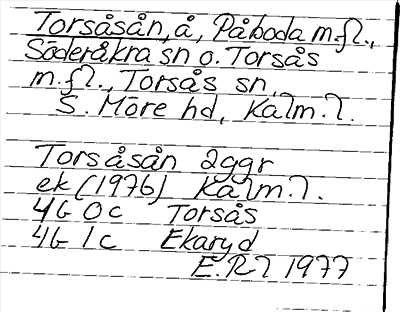 Torsåsån, å, Påboda m.fl.,
Söderåkra sn o. Torsås
m.fl., Torsås sn,
S. Möre hd, Kalm. l.
Torsåsån 2ggr
ek (1976) Kalm. l.
4G 0c Torsås
4G 1c Ekaryd
E.Rl 1977